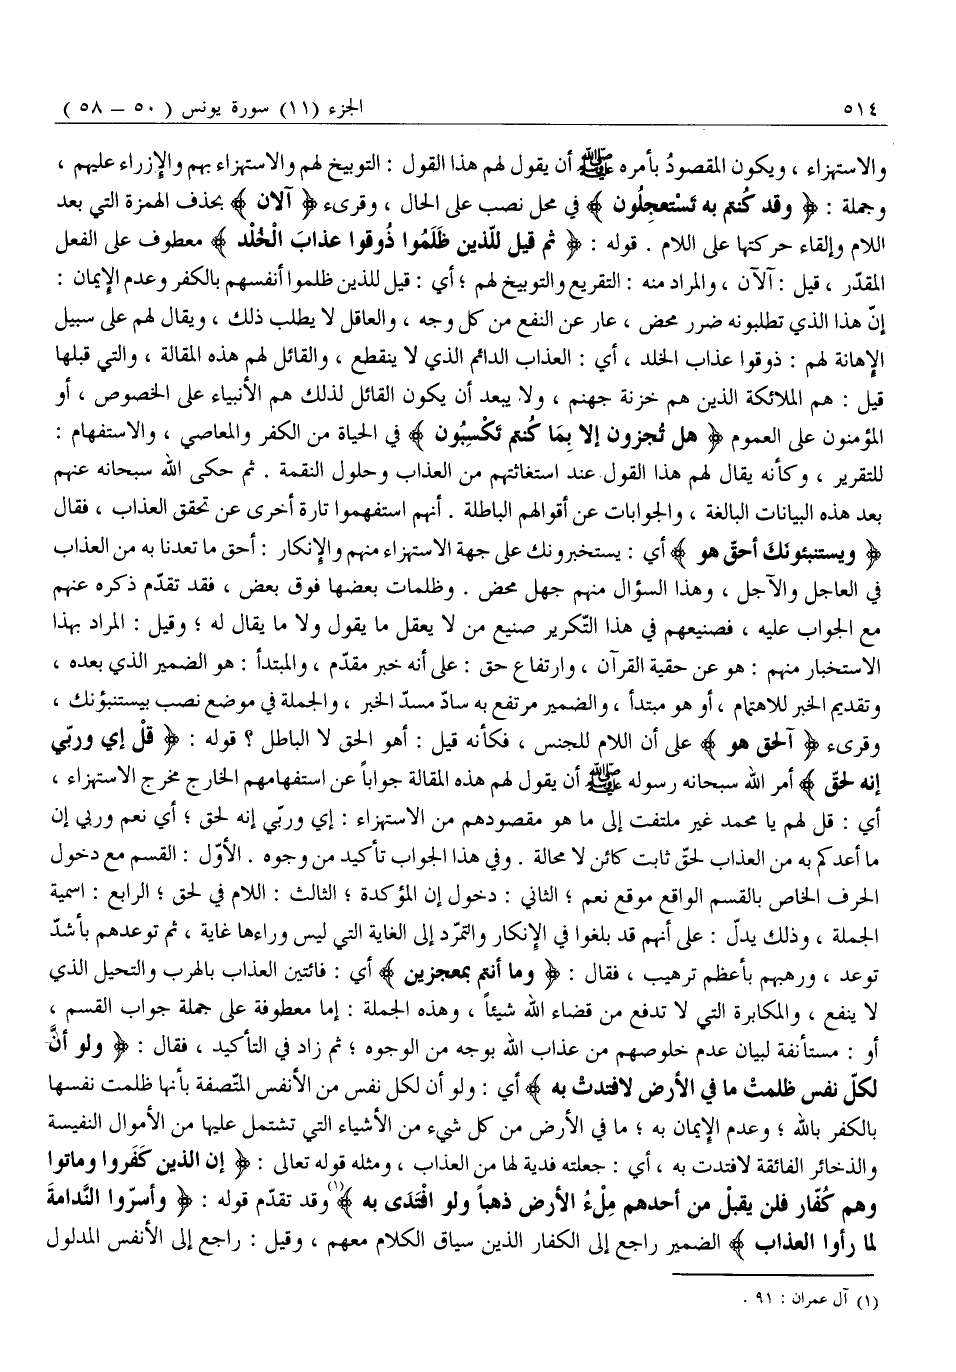 ٥١٤ الجزء (١١) سورة يونس ( ٥٠ – ٥٨ )
والاستهزاء ، ويكون المقصودُ بأمره ﷺ أن يقول لهم هذا القول : التوبيخ لهم والاستهزاء بهم والإزراء عليهم ،
وجملة : ﴿ وقد كُنتم به تَسْتعجلُون ﴾ في محل نصب على الحال ، وقرىء ﴿ آلان ﴾ بحذف الهمزة التي بعد
اللام وإلقاء حركتها على اللام . قوله : ﴿ ثم قيل للّذين ظَلَمُوا ذُوقوا عذابَ الْخُلد ﴾ معطوف على الفعل
المقدّر ، قيل : آلآن ، والمراد منه : التقريع والتوبيخ لهم ؛ أي : قيل للذين ظلموا أنفسهم بالكفر وعدم الإيمان :
إنّ هذا الذي تطلبونه ضرر محض ، عار عن النفع من كل وجه ، والعاقل لا يطلب ذلك ، ويقال لهم على سبيل
الإهانة لهم : ذوقوا عذاب الخلد ، أي : العذاب الدائم الذي لا ينقطع ، والقائل لهم هذه المقالة ، والتي قبلها
قيل : هم الملائكة الذين هم خزنة جهنم ، ولا يبعد أن يكون القائل لذلك هم الأنبياء على الخصوص ، أو
المؤمنون على العموم ﴿ هل تُجزون إلا بِمَا كُنتم تَكْسِبُون ﴾ في الحياة من الكفر والمعاصي ، والاستفهام :
للتقرير ، وكأنه يقال لهم هذا القول عند استغاثتهم من العذاب وحلول النقمة . ثم حكى الله سبحانه عنهم
بعد هذه البيانات البالغة ، والجوابات عن أقوالهم الباطلة . أنهم استفهموا تارة أخرى عن تحقق العذاب ، فقال
﴿ ويستنبئونَكَ أحقّ هو ﴾ أي : يستخبرونك على جهة الاستهزاء منهم والإنكار : أحق ما تعدنا به من العذاب
في العاجل والآجل ، وهذا السؤال منهم جهل محض . وظلمات بعضها فوق بعض ، فقد تقدّم ذكره عنهم
مع الجواب عليه ، فصنيعهم في هذا التّكرير صنيع من لا يعقل ما يقول ولا ما يقال له ؛ وقيل : المراد بهذا
الاستخبار منهم : هو عن حقية القرآن ، وارتفاع حق : على أنه خبر مقدّم ، والمبتدأ : هو الضمير الذي بعده ،
وتقديم الخبر للاهتمام ، أو هو مبتدأ ، والضمير مرتفع به سادّ مسدّ الخبر ، والجملة في موضع نصب بيستنبؤنك ،
وقرىء ﴿ آلحق هو ﴾ على أن اللام للجنس ، فكأنه قيل : أهو الحق لا الباطل ؟ قوله : ﴿ قلْ إي وربّي
إنه لحقّ ﴾ أمر الله سبحانه رسوله ﷺ أن يقول لهم هذه المقالة جواباً عن استفهامهم الخارج مخرج الاستهزاء ،
أي : قل لهم يا محمد غير ملتفت إلى ما هو مقصودهم من الاستهزاء : إي وربّي إنه لحق ؛ أي نعم وربي إن
ما أعدكم به من العذاب لحقّ ثابت كائن لا محالة . وفي هذا الجواب تأكيد من وجوه . الأوّل : القسم مع دخول
الحرف الخاص بالقسم الواقع موقع نعم ؛ الثاني : دخول إن المؤكدة ؛ الثالث : اللام في لحق ؛ الرابع : اسمية
الجملة ، وذلك يدلّ : على أنهم قد بلغوا في الإنكار والتمرّد إلى الغاية التي ليس وراءها غاية ، ثم توعدهم بأشدّ
توعد ، ورهبهم بأعظم ترهيب ، فقال : ﴿ وما أنتم بمعجزين ﴾ أي : فائتين العذاب بالهرب والتحيل الذي
لا ينفع ، والمكابرة التي لا تدفع من قضاء الله شيئاً ، وهذه الجملة : إما معطوفة على جملة جواب القسم ،
أو : مستأنفة لبيان عدم خلوصهم من عذاب الله بوجه من الوجوه ؛ ثم زاد في التأكيد ، فقال : ﴿ ولو أنَّ
لكلّ نفس ظلمتْ ما في الأرض لافتدتْ به ﴾ أي : ولو أن لكل نفس من الأنفس المتّصفة بأنها ظلمت نفسها
بالكفر بالله ؛ وعدم الإيمان به ؛ ما في الأرض من كل شيء من الأشياء التي تشتمل عليها من الأموال النفيسة
والذخائر الفائقة لافتدت به ، أي : جعلته فدية لها من العذاب ، ومثله قوله تعالى : ﴿ إن الذين كَفَروا وماتوا
وهم كُفّار فلن يقبلْ من أحدهم مِلْءُ الأرض ذهباً ولو افْتَدَى به ﴾(١) وقد تقدّم قوله : ﴿ وأسرّوا النّدامةَ
لما رأوا العذاب ﴾ الضمير راجع إلى الكفار الذين سياق الكلام معهم ، وقيل : راجع إلى الأنفس المدلول
(١) آل عمران : ٩١ .